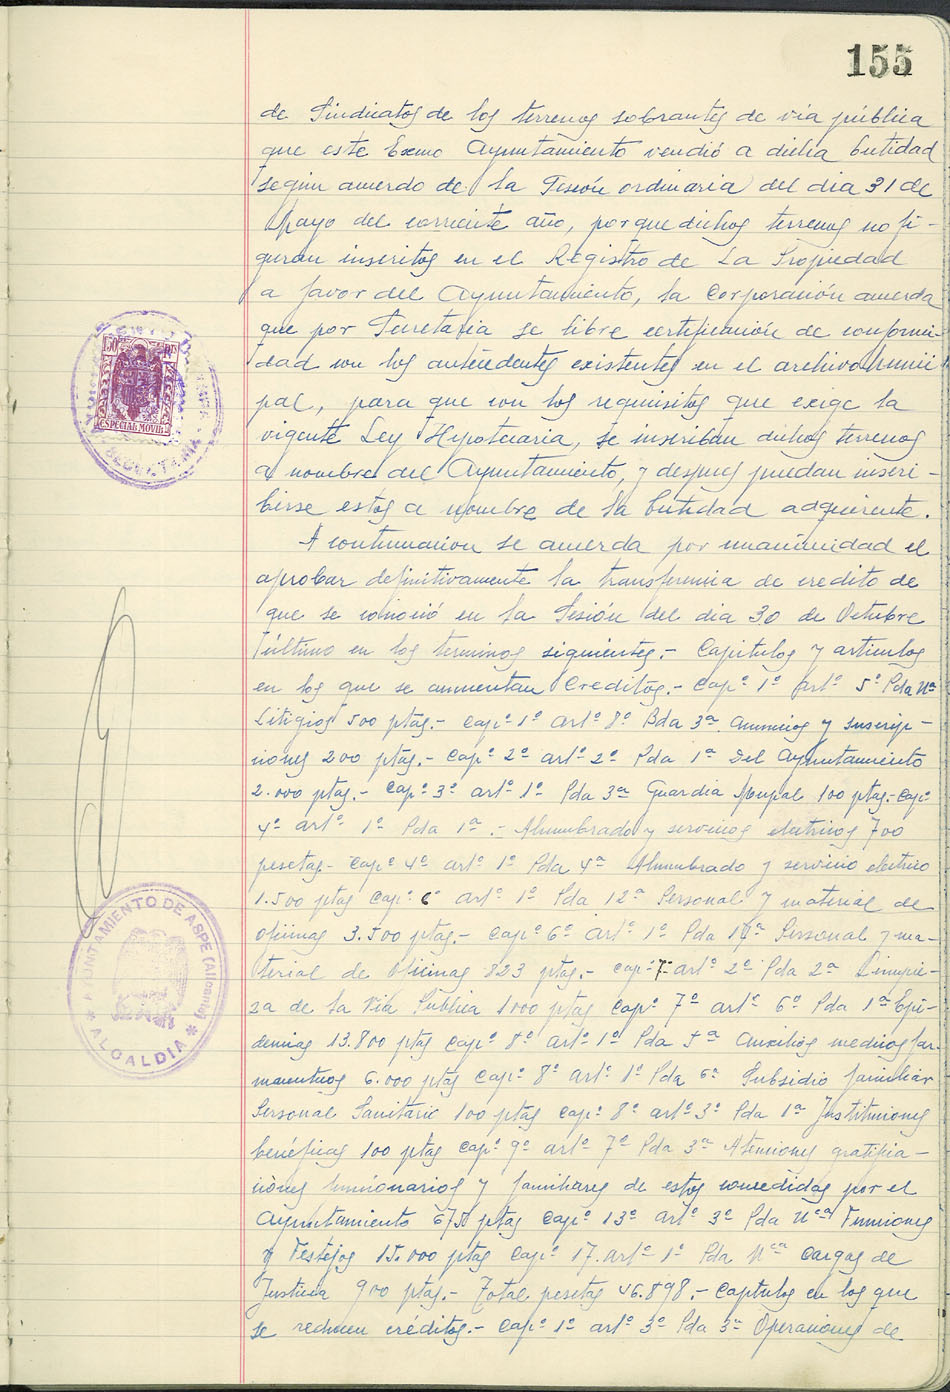 155
de Sindicatos de los terrenos sobrantes de vía pública
que este Excmo Ayuntamiento vendió a dicha Entidad
según acuerdo de la Sesión ordinaria del dia 31 de
Mayo del corriente año, porque dichos terrenos no fi-
guran inscritos en el Registro de La Propiedad
a favor del Ayuntamiento, la Corporación acuerda
que por Secretaria se libre certificación de conformi-
dad con los antecedentes existentes en el archivo Munici
pal, para que con los requisitos que exige la
vigente Ley Hipotecaria, se inscriban dichos terrenos
a nombre del Ayuntamiento, y despues puedan inscri-
birse estos a nombre de la Entidad adquirente.
A continuacion se acuerda por unanimidad el
aprobar definitivamente la transferencia de credito de
que se conoció en la Sesión del dia 30 de Octubre
último en los terminos siguientes.- Capitulos y articulos
en los que se aumentan Creditos.- Capº 1º artº 5º Pda Uª
Litigios 500 ptas.- Capº 1º artº 8º Pda 3ª Anuncios y suscrip-
ciones 200 ptas.- Capº 2º artº 2º Pda 1ª Del Ayuntamiento
2.000 ptas.- Capº 3º artº 1º Pda 3ª Guardia Mpal 100 ptas.- Capº
4º artº 1º Pda 1ª.- Alumbrado y servicios electricos 700
pesetas.- Capº 4º artº 1º Pda 4ª Alumbrado y servicio electrico
1.500 ptas Capº 6º artº 1º Pda 12ª Personal y material de
oficinas 3.500 ptas.- Capº 6º artº 1º Pda 14ª Personal y ma-
terial de Oficinas 823 ptas.- Capº 7º artº 2º Pda 2ª Limpie-
za de la Via Pública 1000 ptas Capº 7º artº 6º Pda 1ª Epi-
demias 13.800 ptas Capº 8º artº 1º Pda 5ª Auxilios medicos far-
maceuticos 6.000 ptas Capº 8º artº 1º Pda 6ª Subsidio familiar
Personal Sanitario 100 ptas Capº 8º artº 3º Pda 1ª Instituciones
benéficas 100 ptas Capº 9º artº 7º Pda 3ª Atenciones gratifica-
ciónes funcionarios y familiares de estos concedidas por el
Ayuntamiento 675 ptas Capº 13º artº 3º Pda Uᶜª Funciones
y Festejos 15.000 ptas Capº 17. artº 1º Pda Uᶜª Cargas de
Justicia 900 ptas.- Total pesetas 46.898.- Captulos en los que
se reducen créditos.- Capº 1º artº 3º Pda 3ª Operaciones de
1,50 PTS
ESPECIAL MOVIL
SECRETARIA
AYUNTAMIENTO DE ASPE (Alicante)
* ALCALDIA *